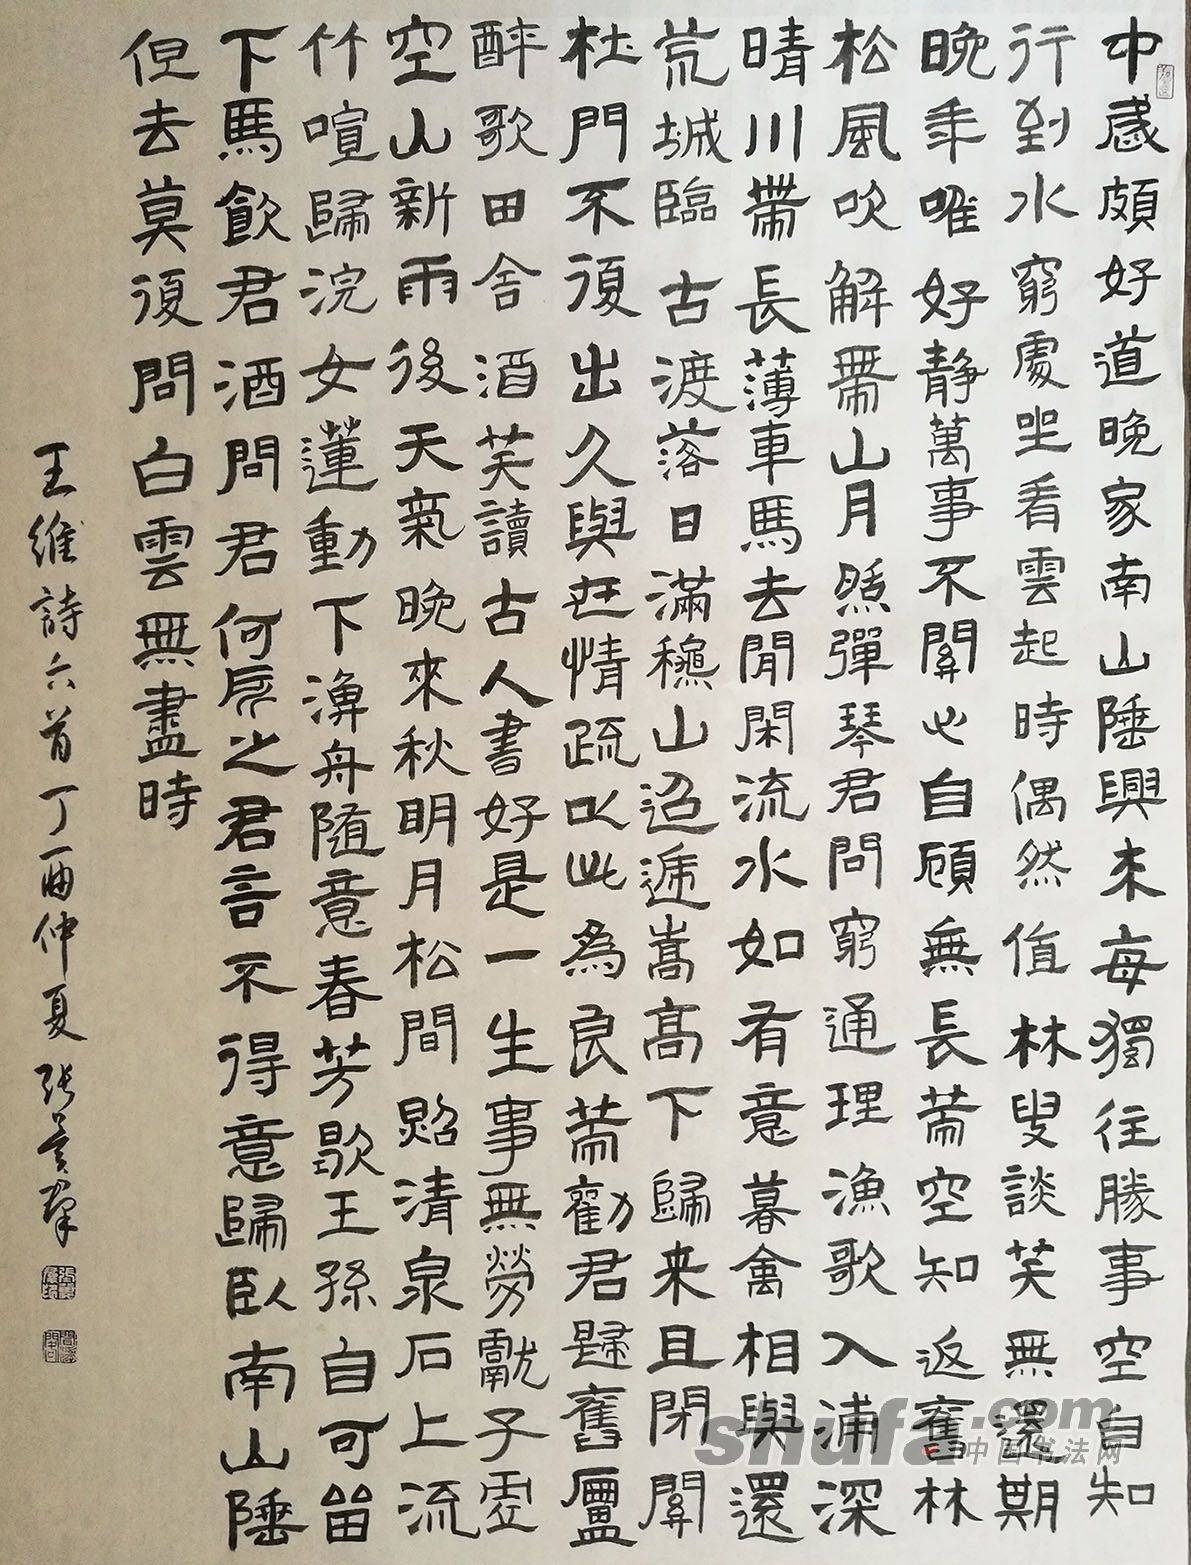 中歲頗好道晚家南山陲興來每獨往勝事空自知
行到水窮處坐看雲起時偶然值林叟談笑無還期
晚年唯好靜萬事不關心自顧無長策空知返舊林
松風吹解帶山月照彈琴君問窮通理漁歌入浦深
晴川帶長薄車馬去閒閑流水如有意暮禽相與還
荒城臨古渡落日滿穐山迢遞嵩高下歸来且閉關
杜門不復出久與世情疏以此為良策勸君歸舊廬
醉歌田舍酒笑讀古人書好是一生事無勞獻子虛
空山新雨後天氣晚來秋明月松間照清泉石上流
竹喧歸浣女蓮動下漁舟隨意春芳歇王孫自可留
下馬飲君酒問君何所之君言不得意歸臥南山陲
但去莫復問白雲無盡時
王維詩六首丁酉仲夏張
shufa.com
中国书法网